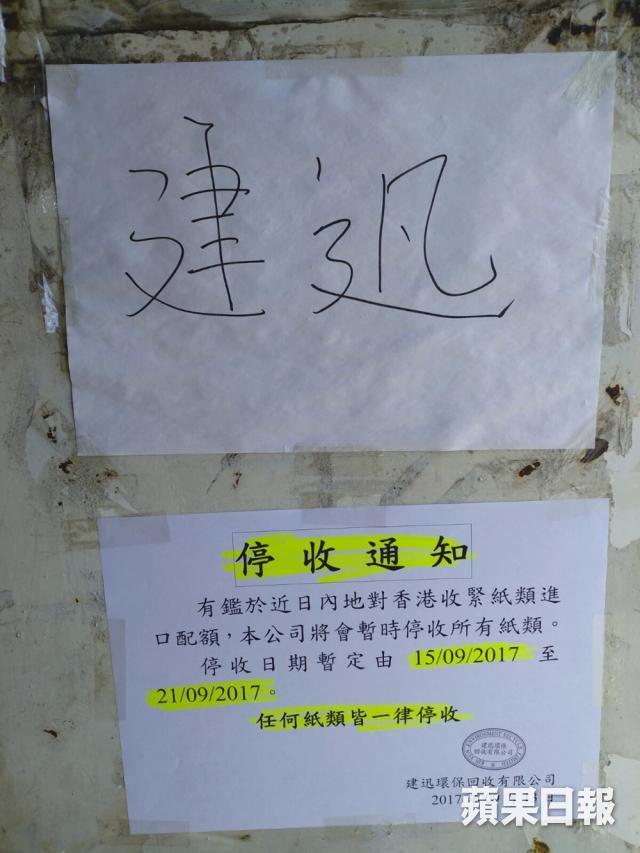 建迅
停收通知
有鑑於近日內地對香港收緊紙類進
口配額，本公司將會暫時停收所有紙類。
停收日期暫定由 15/09/2017 至
21/09/2017。
任何紙類皆一律停收
建迅環保
回收有限公司
建迅環保回收有限公司
2017
蘋果日報